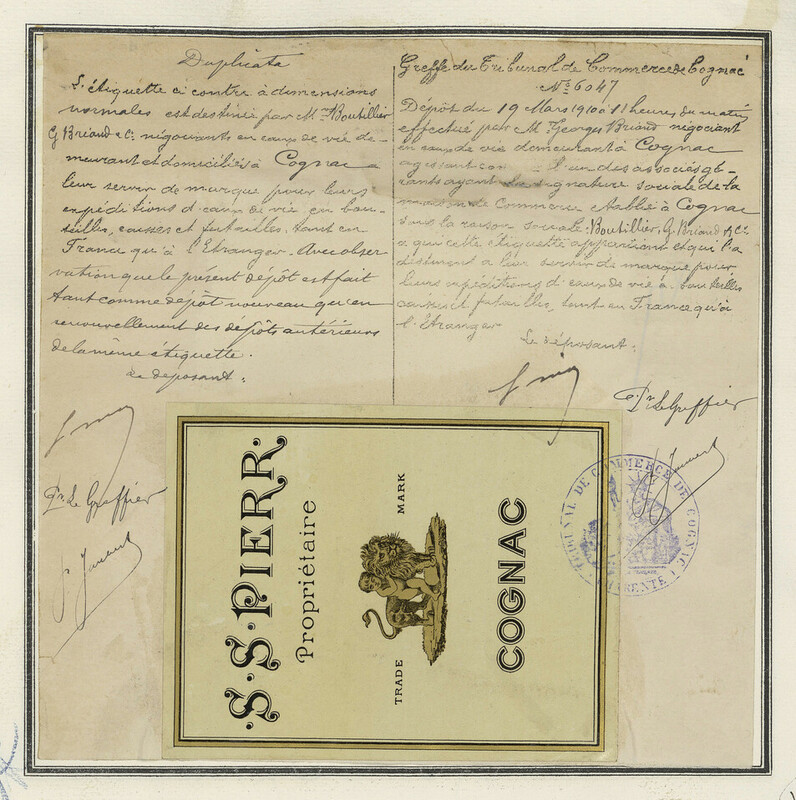 Duplicata
L'étiquette ci contre à dimensions
normales est destinée par M.rs Boutillier
G Briand & Cie négociants en eaux de vie de-
meurant et domiciliés à Cognac a
leur servir de marque pour leurs
expéditions d'eaux de vie en bou-
teilles, caisses et futailles, tant en
France qu'à l'Etranger. Avec obser
vation que le présent dépôt est fait
tant comme dépôt nouveau qu'en
renouvellement des dépôts antérieurs
de la même étiquette.
Le déposant:
Pr Le Greffier
Greffe du Tribunal de Commerce de Cognac
No. 6047
Dépôt du 19 Mars 1910 à 11 heures du matin
effectué par M. Georges Briand négociant
en eaux de vie demeurant à Cognac
agissant com l'un des associés gé-
rants ayant la signature sociale de la
maison de Commerce établie à Cognac
sous la raison sociale Boutillier, G. Briand & Cie
a qui cette étiquette appartient et qui l'a
destinent a leur servir de marque pour
leurs expéditions d'eaux de vie en bouteilles
caisses et futailles, tant en France qu'à
l'Etranger
Le déposant:
Pr Le Greffier
S.S. PIERR.
Propriétaire
TRADE MARK
COGNAC
TRIBUNAL DE COMMERCE DE COGNAC
CHARENTE